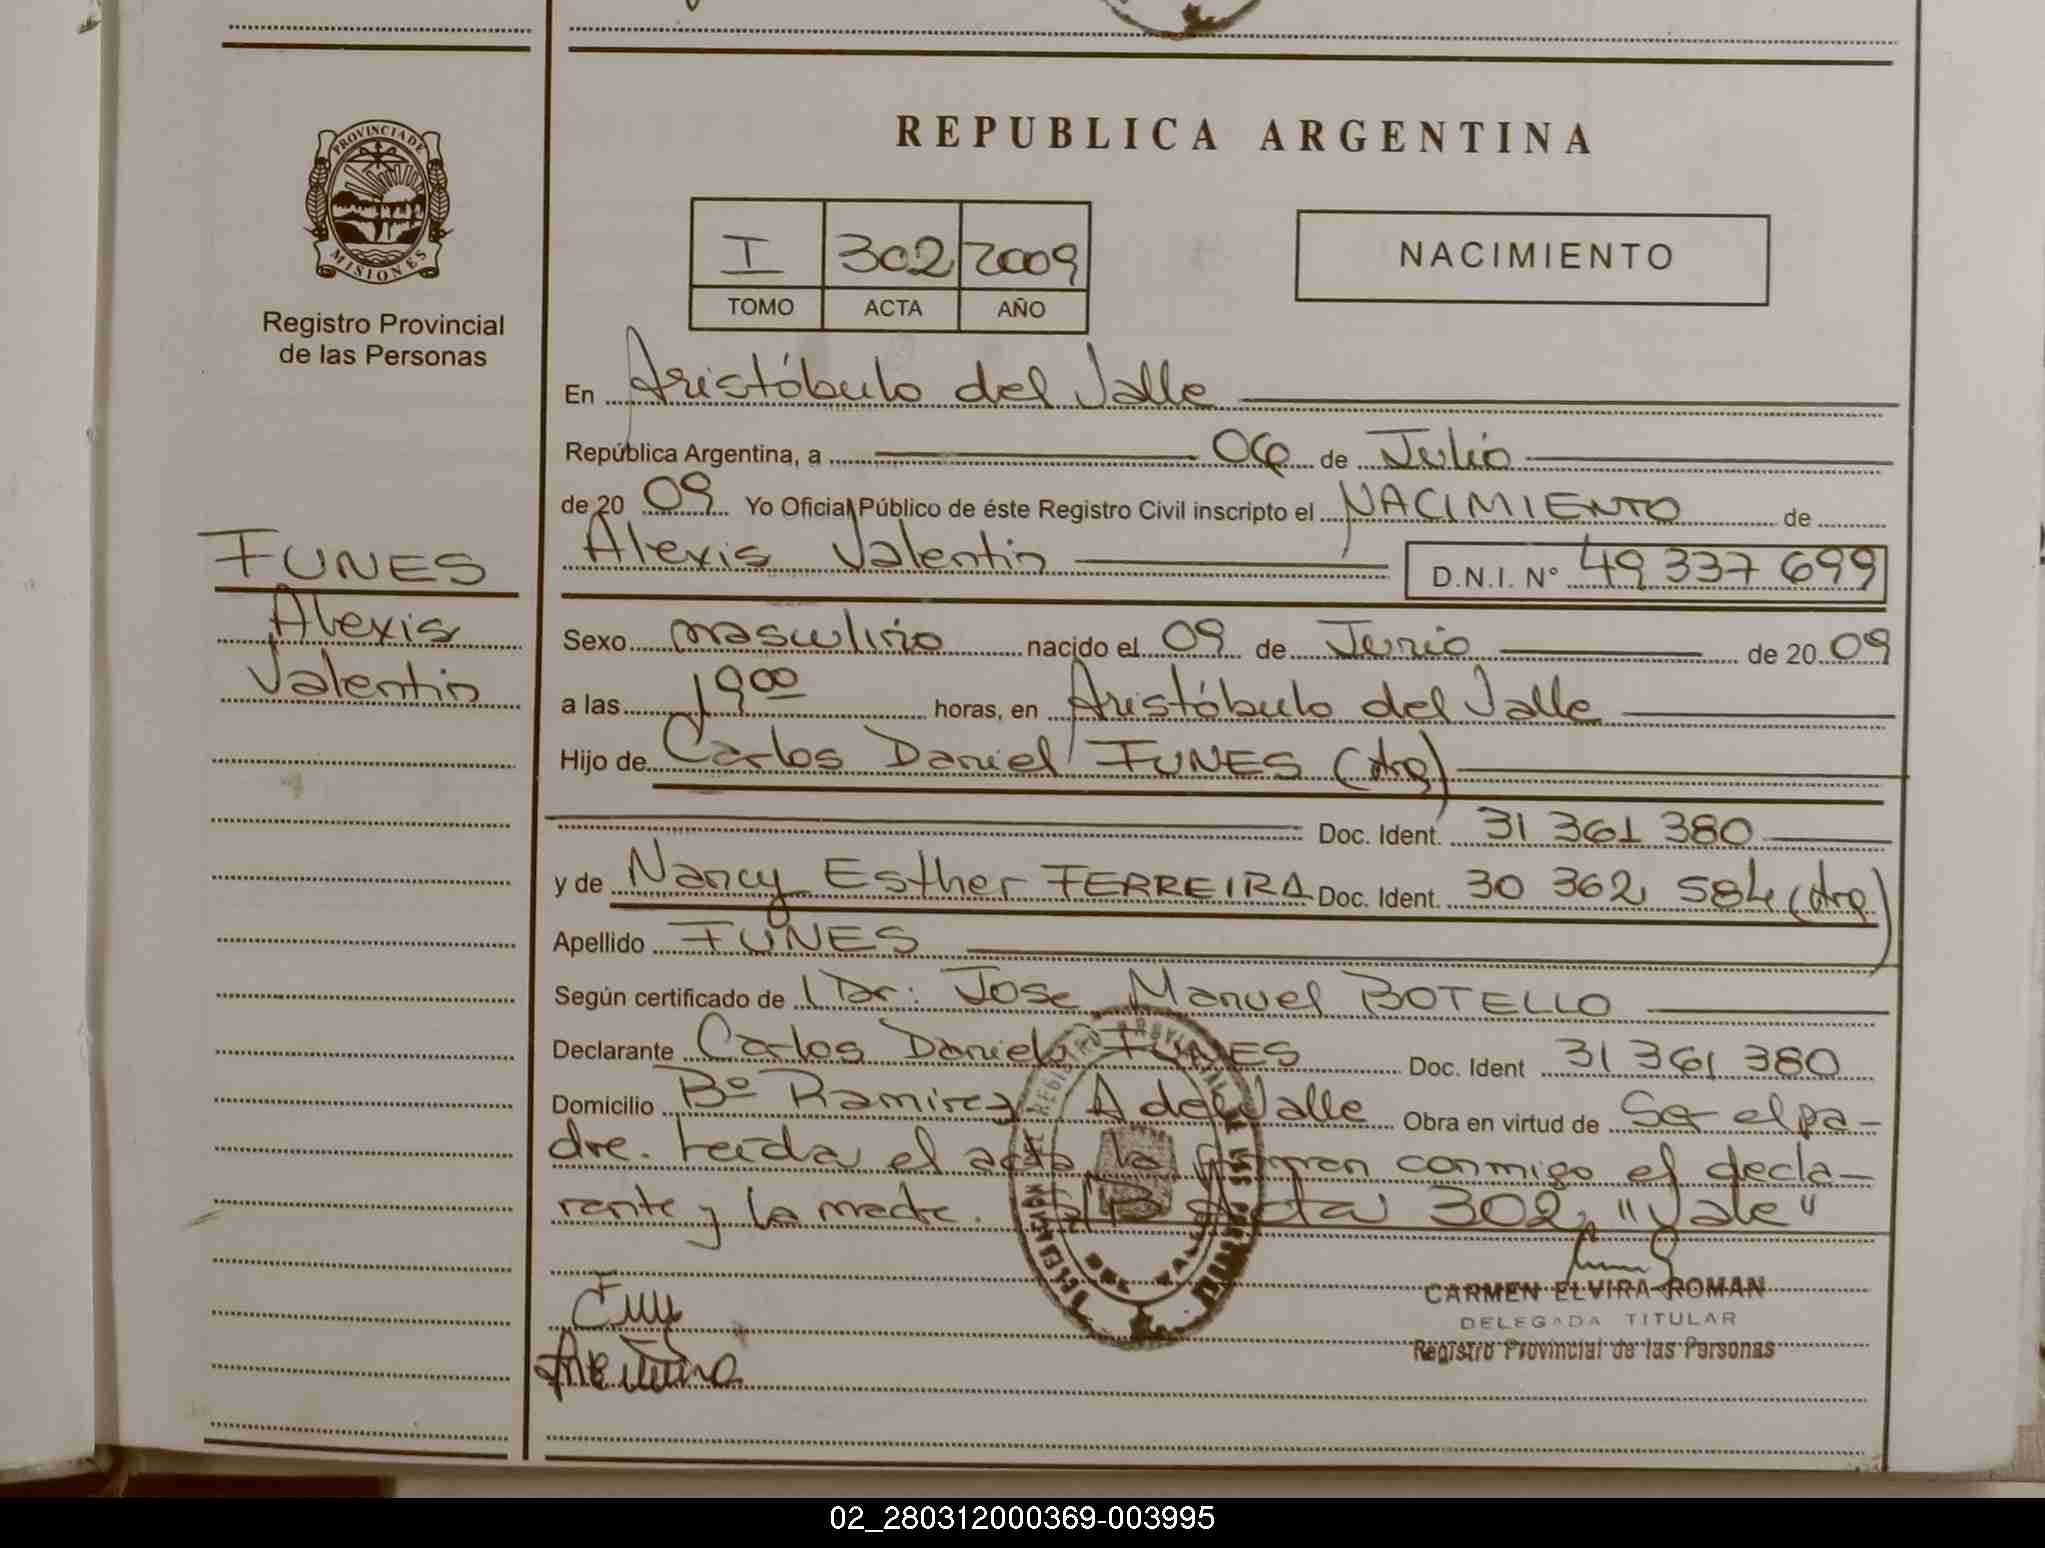 PROVINCIA DE
MISIONES
Registro Provincial
de las Personas
FUNES
Alexis
Valentin
REPUBLICA ARGENTINA
I 302 2009
TOMO ACTA AÑO
NACIMIENTO
En Aristóbulo del Valle
República Argentina, a 06 de Julio
de 20 09 Yo Oficial Público de éste Registro Civil inscripto el NACIMIENTO de
Alexis Valentin D.N.I. Nº 49 337 699
Sexo masculino nacido el 09 de Junio de 20 09
a las 19 00 horas, en Aristóbulo del Valle
Hijo de Carlos Daniel FUNES (Arg)
Doc. Ident. 31 361 380
y de Nancy Esther FERREIRA Doc. Ident. 30 362 584 (Arg)
Apellido FUNES
Según certificado de Dr: Jose Manuel BOTELLO
Declarante Carlos Daniel FUNES Doc. Ident 31 361 380
Domicilio Bº Ramirez A del Valle Obra en virtud de Ser el pa-
dre. Leida el acta la firman conmigo el decla-
rante y la madre. Acta 302 "Vale"
CARMEN ELVIRA ROMAN
DELEGADA TITULAR
Registro Provincial de las Personas
02_280312000369-003995